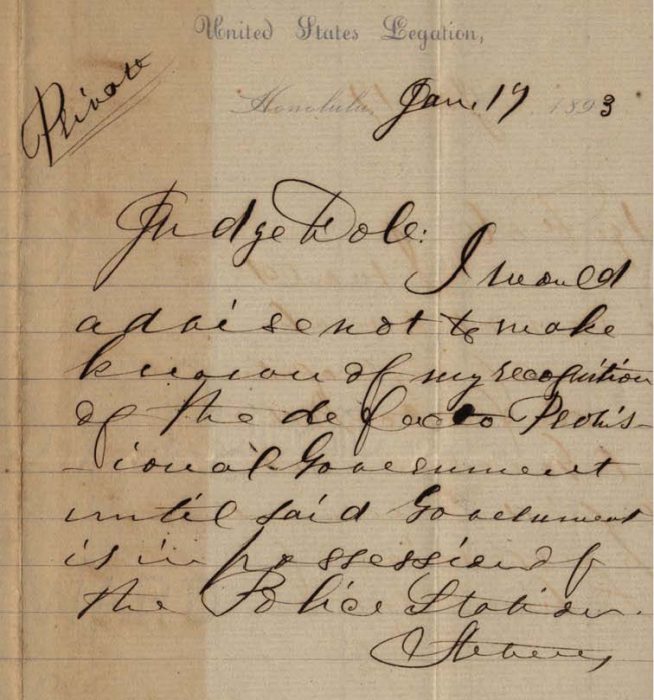 United States Legation,
Private
Honolulu, Jan. 17 1893
Judge Dole:
I would
advise not to make
known of my recognition
of the de facto Provis-
-ional Government
until said Government
is in possession of
the Police Station.
Stevens